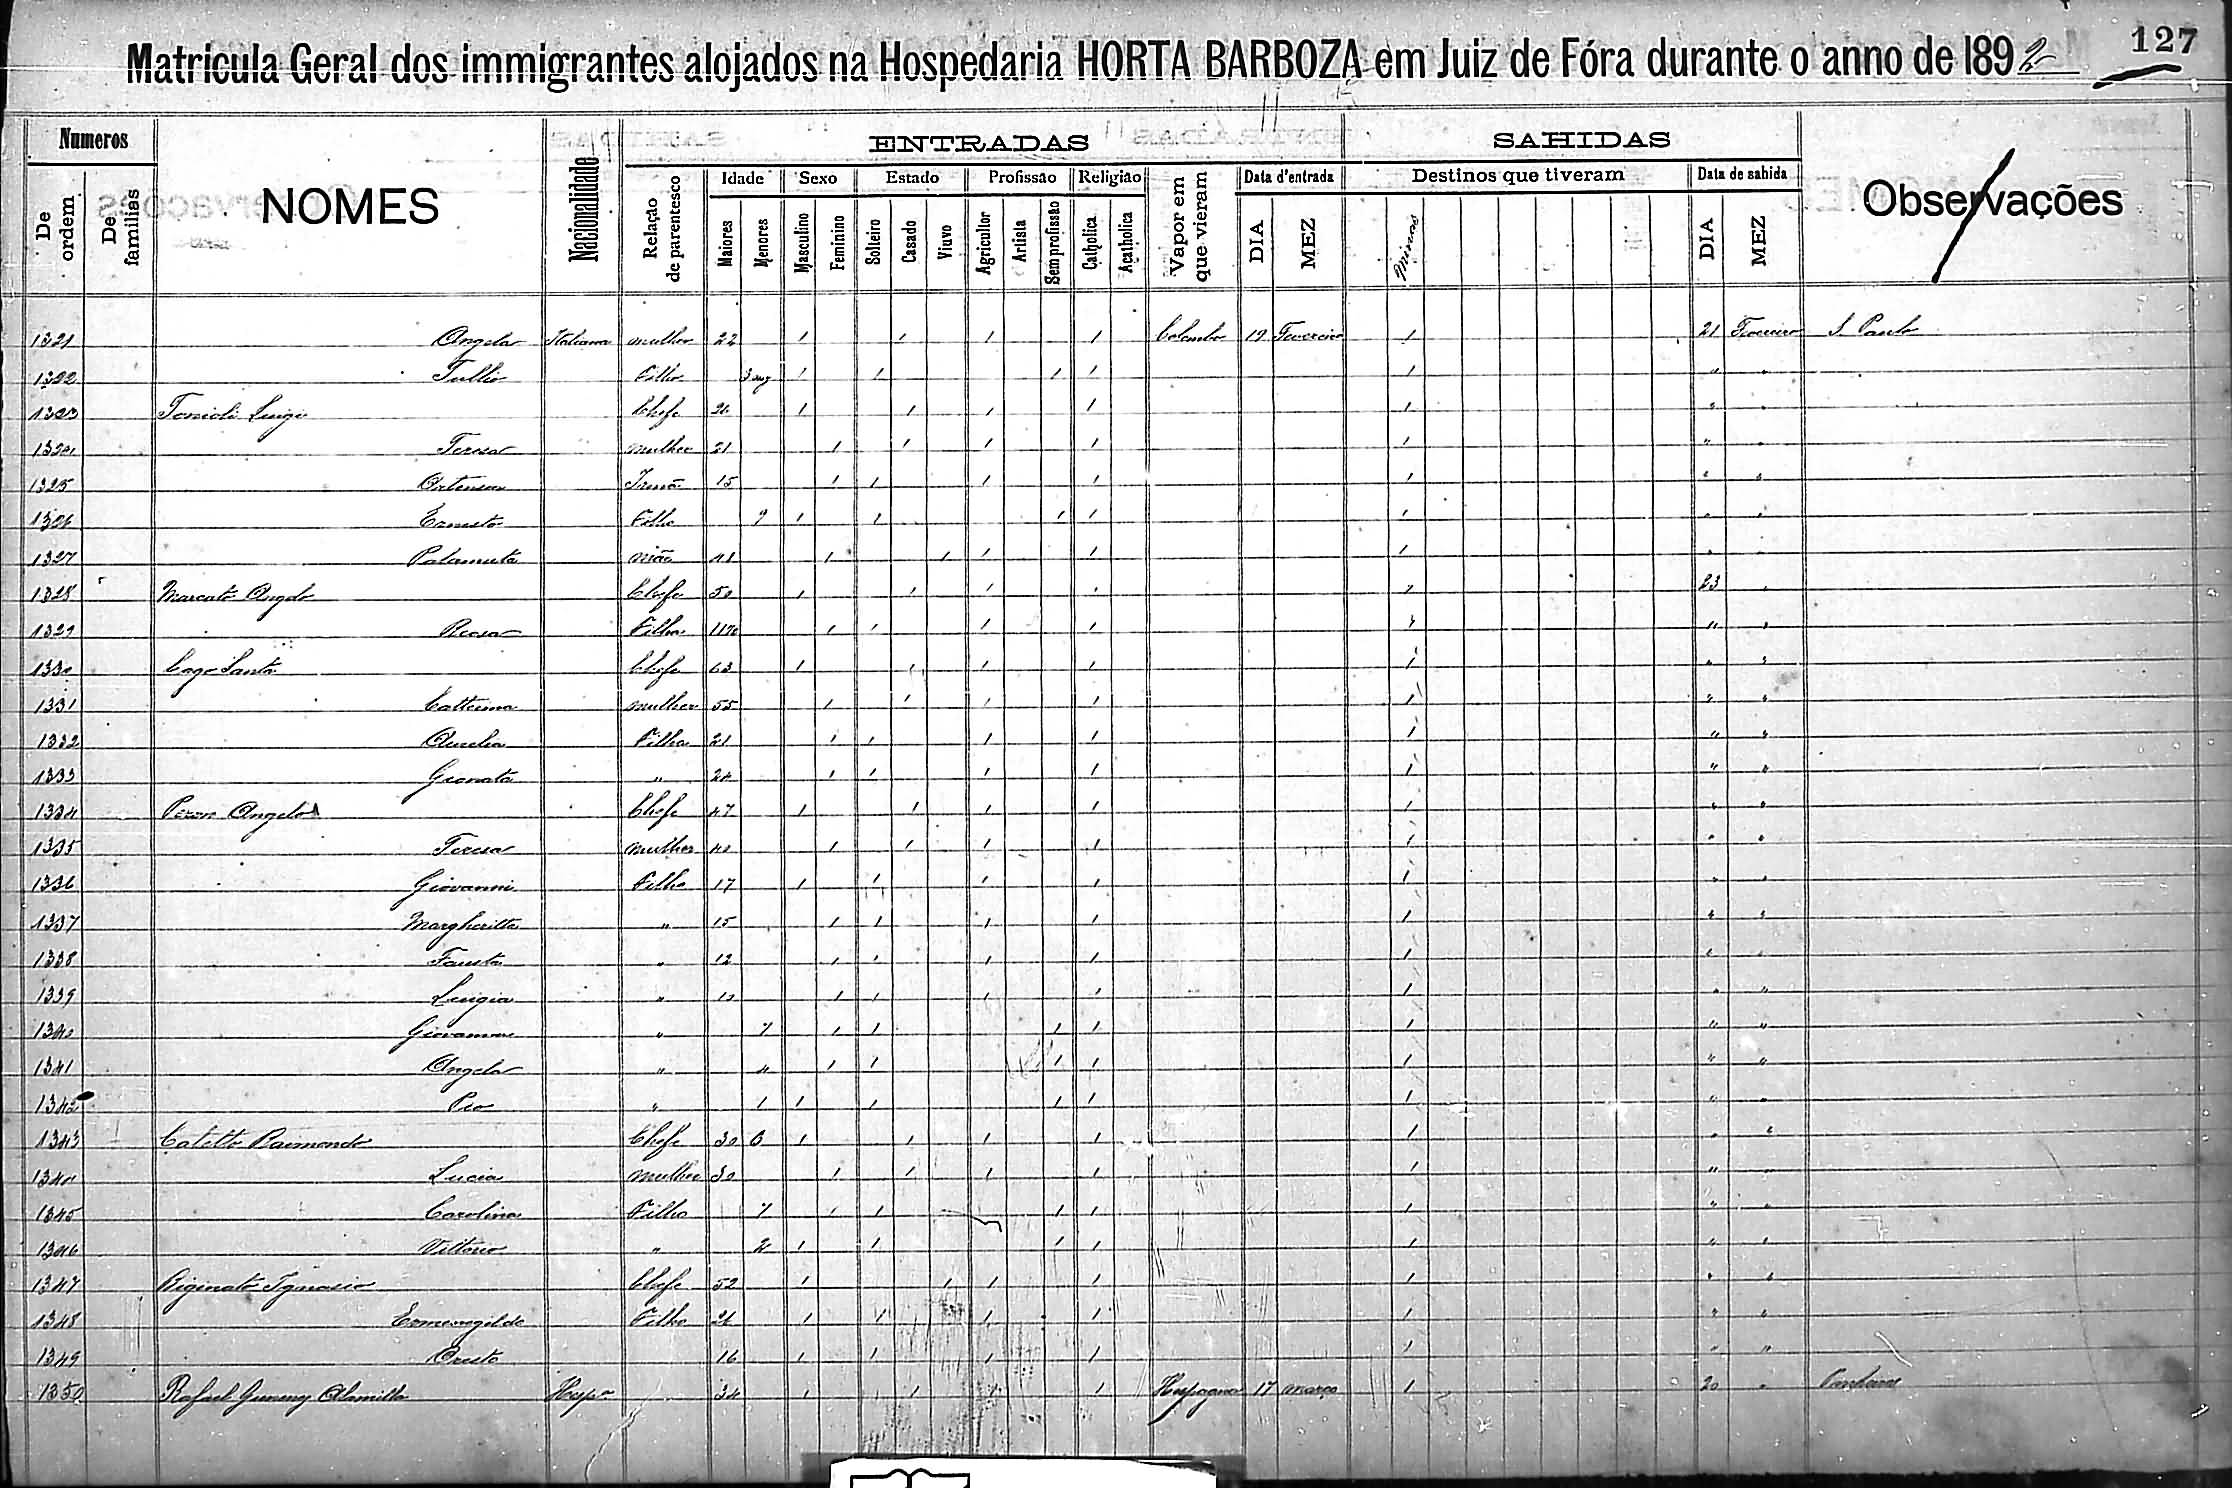 127
Matricula Geral dos immigrantes alojados na Hospedaria HORTA BARBOZA em Juiz de Fóra durante o anno de 1892
Numeros NOMES Nacionalidade ENTRADAS SAHIDAS Observações
De ordem De familias Relação de parentesco Idade Sexo Estado Profissão Religião Vapor em que vieram Data d'entrada Destinos que tiveram Data de sahida
Maiores Menores Masculino Feminino Solteiro Casado Viuvo Agricultor Artista Sem profissão Catholica Acatholica DIA MEZ Minas DIA MEZ
1321 Angela Italiana mulher 22 1 1 1 1 Colombo 19 Fevereiro 1 21 Fevereiro S. Paulo
1322 Tullio Filho 3 1 1 1 1 1 " "
1323 Luigi Chefe 26 1 1 1 1 1 " "
1324 Teresa mulher 21 1 1 1 1 1 " "
1325 Irmã 15 1 1 1 1 1 " "
1326 Ernesto Filho 1 1 1 1 1 " "
1327 mãe 1 1 1 1 1 " "
1328 Marcato Angelo Chefe 50 1 1 1 1 1 23 "
1329 Rosa Filha 1 1 1 1 1 " "
1330 Chefe 63 1 1 1 1 1 " "
1331 Catterina mulher 55 1 1 1 1 1 " "
1332 Amelia Filha 21 1 1 1 1 1 " "
1333 " 24 1 1 1 1 1 " "
1334 Angelo Chefe 47 1 1 1 1 1 " "
1335 Teresa mulher 40 1 1 1 1 1 " "
1336 Giovanni Filho 17 1 1 1 1 1 " "
1337 Margheritta " 15 1 1 1 1 1 " "
1338 Fausta " 12 1 1 1 1 1 " "
1339 Luigia " 10 1 1 1 1 1 " "
1340 " 7 1 1 1 1 1 " "
1341 Angela " 4 1 1 1 1 1 " "
1342 Pio " 1 1 1 1 1 1 " "
1343 Raimondo Chefe 30 1 1 1 1 1 " "
1344 Lucia mulher 30 1 1 1 1 1 " "
1345 Carolina Filha 7 1 1 1 1 1 " "
1346 Vittorio " 2 1 1 1 1 1 " "
1347 Riginato Ignacio Chefe 52 1 1 1 1 1 " "
1348 Ermenegildo Filho 26 1 1 1 1 1 " "
1349 Oreste 16 1 1 1 1 1 " "
1350 Rafael 34 1 1 1 1 17 março 1 20 "